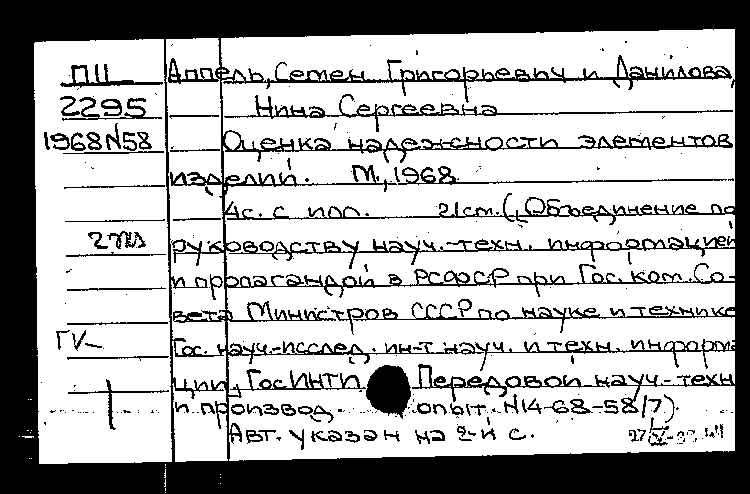 П11 Аппель, Семен Григорьевич и Данилова,
2295 Нина Сергеевна
1968 N58 Оценка надежности элементов
изделий. М., 1968
4с. с илл. 21 см. (Объединение по
руководству науч.-техн. информацией
и пропагандой в РСФСР при Гос. ком. Со-
вета Министров СССР по науке и технике
Гос. науч-исслед. ин-т науч. и техн. информа
ции, ГосИНТИ Передовой науч.-техн
и производ. опыт. N14-68-58/7)
Авт. указан на 2-й с.